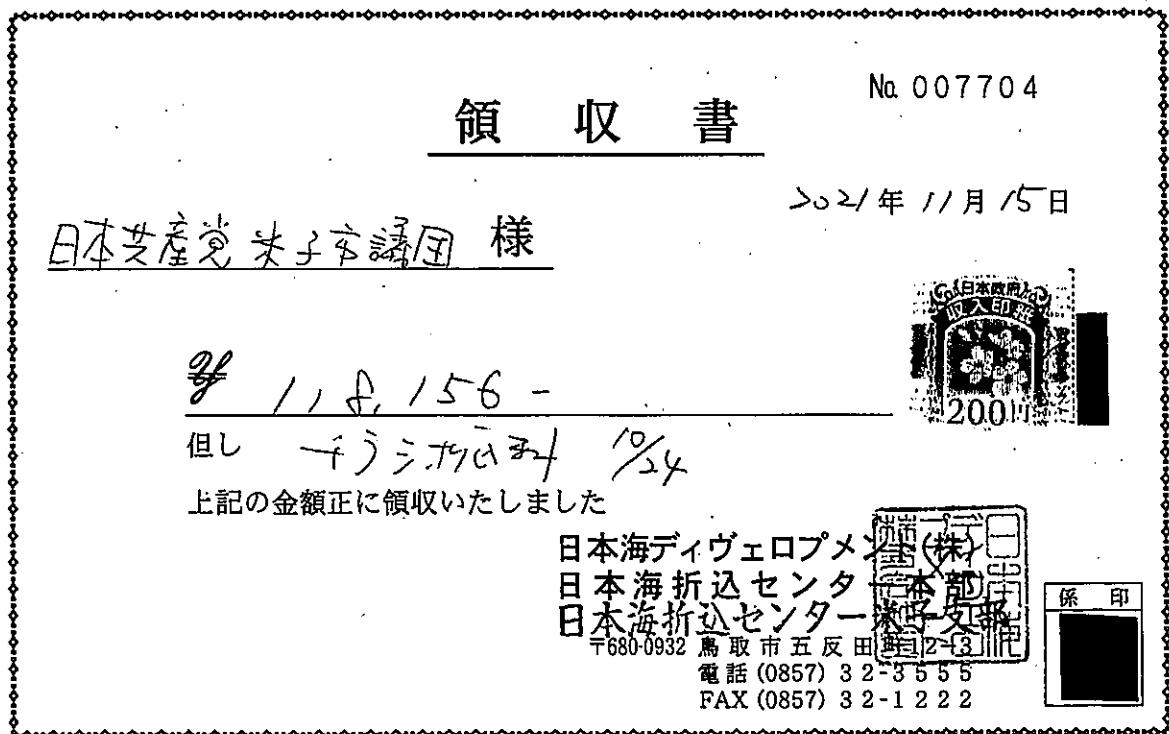 No. 007704
領収書
2021年11月15日
日本共産党 米子市議団 様
日本政府
収入印紙
200円
¥ 118,156-
但し チラシ折込料 10/24
上記の金額正に領収いたしました
日本海ディヴェロプメント(株)
日本海折込センター本部
日本海折込センター米子支部
〒680-0932 鳥取市五反田町12-3
電話 (0857) 32-3555
FAX (0857) 32-1222
係印